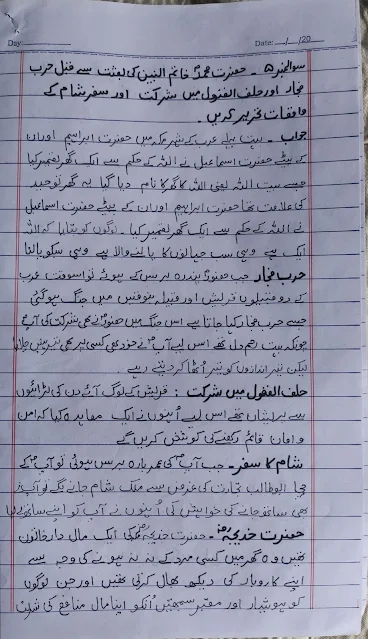 Day Date: / /20
سوال نمبر ۵ - حضرت محمدؐ خاتم النبین کی بعثت سے قبل حرب
فجار اور حلف الفضول میں شرکت اور سفر شام کے
واقعات تحریر کریں۔
جواب - بہت پہلے عرب کے شہر مکہ میں حضرت ابراہیم اور ان
کے بیٹے حضرت اسماعیل نے اللہ کے حکم سے ایک گھر تعمیر کیا
جسے بیت اللہ یعنی اللہ کا گھر کا نام دیا گیا یہ گھر توحید
کی علامت تھا حضرت ابراہیم اور ان کے بیٹے حضرت اسماعیل
نے اللہ کے حکم سے ایک گھر تعمیر کیا۔ لوگوں کو بتایا کہ اللہ
ایک ہے وہی سب جہانوں کا پالنے والا ہے وہی سب کو پالتا
حرب فجار جب حضورؐ پندرہ برس کے ہوئے تو اسوقت عرب
کے دو قبیلوں قریش اور قبیلہ میں جنگ ہو گئی
جسے حرب فجار کہا جاتا ہے اس جنگ میں حضورؐ نے بھی شرکت کی آپؐ
چونکہ بہت رحم دل تھے اس لیے آپؐ نے خود بھی کسی پر بھی تیر نہیں چلایا
لیکن تیر اندازوں کو تیر اُٹھا کر دیتے رہے
حلف الفضول میں شرکت : قریش کے لوگ آئے دن کی لڑائیوں
سے پریشان تھے اس لیے اُنہوں نے ایک معاہدہ کیا کہ امن
و امان قائم رکھنے کی کوشش کریں گے
شام کا سفر - جب آپؐ کی عمر بارہ برس ہوئی تو آپؐ کے
چچا ابوطالب تجارت کی غرض سے ملک شام جانے لگے تو آپؐ نے
بھی ساتھ جانے کی خواہش کی اُنہوں نے آپ کو اپنے ساتھ لے لیا
حضرت خدیجہؓ - حضرت خدیجہؓ مکہ کی ایک مال دار خاتون
تھیں وہ گھر میں کسی مرد کے نہ ہونے کی وجہ سے
اپنے کاروبار کی دیکھ بھال کرتی تھیں اور جن لوگوں
کو ہوشیار اور معتبر سمجھتیں اُنکو اپنا مال منافع کی شرکت